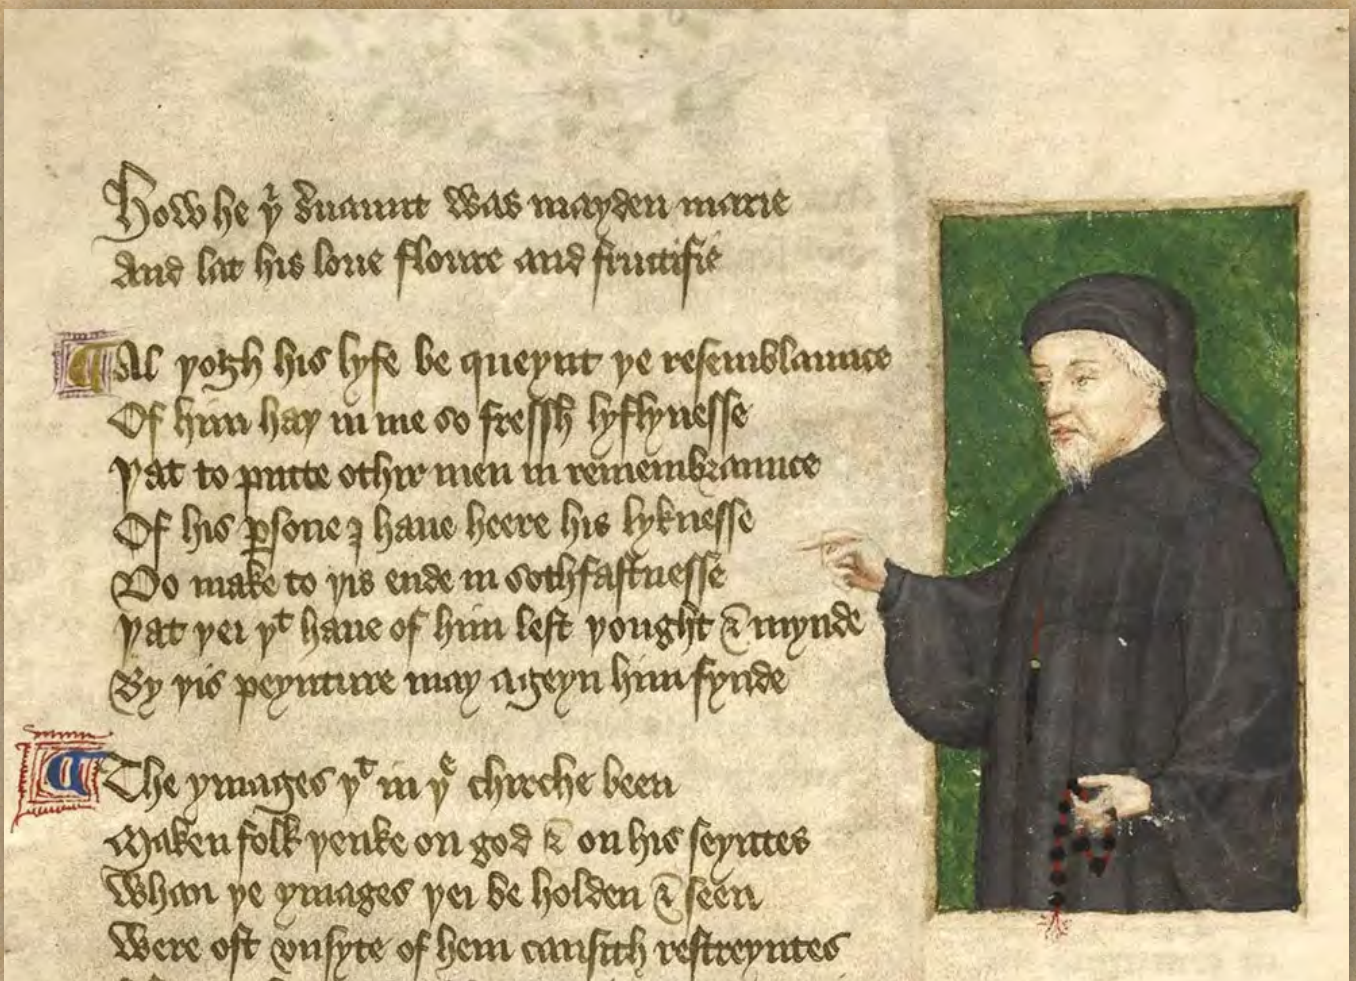 How he yͬ ẜuaunt was mayden marie
And lat his loue floure and fructifie
Al þogh his lyfe be queynt þe resemblaunce
Of him haþ in me so fressh lyflynesse
Þat to putte othir men in remembraunce
Of his ꝑsone I haue heere his lyknesse
Do make to þis ende in sothfastnesse
Þat þei þᵗ haue of him left þought & mynde
By þis peynture may ageyn him fynde
The ymages þᵗ in þᵉ chirche been
Maken folk þenke on god & on his seyntes
Whan þe ymages þei be holden & seen
Were oft vnsyte of hem causith restreyntes